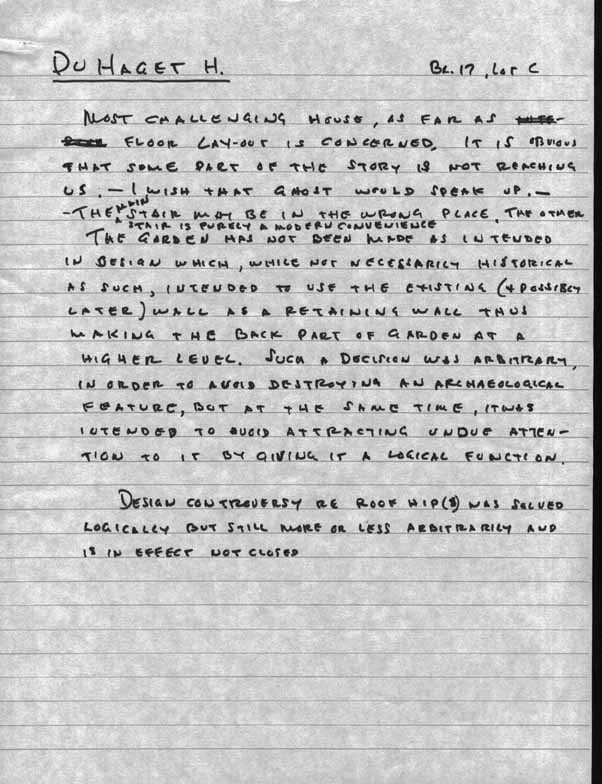 DU HAGET H. BL. 17, LOT C
MOST CHALLENGING HOUSE, AS FAR AS
FLOOR LAY-OUT IS CONCERNED, IT IS OBVIOUS
THAT SOME PART OF THE STORY IS NOT REACHING
US. — I WISH THAT GHOST WOULD SPEAK UP. —
- THE MAIN STAIR MAY BE IN THE WRONG PLACE, THE OTHER
STAIR IS PURELY A MODERN CONVENIENCE
THE GARDEN HAS NOT BEEN MADE AS INTENDED
IN DESIGN WHICH, WHILE NOT NECESSARILY HISTORICAL
AS SUCH, INTENDED TO USE THE EXISTING (& POSSIBLY
LATER) WALL AS A RETAINING WALL THUS
MAKING THE BACK PART OF GARDEN AT A
HIGHER LEVEL. SUCH A DECISION WAS ARBITRARY,
IN ORDER TO AVOID DESTROYING AN ARCHAEOLOGICAL
FEATURE, BUT AT THE SAME TIME, IT WAS
INTENDED TO AVOID ATTRACTING UNDUE ATTEN-
TION TO IT BY GIVING IT A LOGICAL FUNCTION.
DESIGN CONTROVERSY RE ROOF HIP(S) WAS SOLVED
LOGICALLY BUT STILL MORE OR LESS ARBITRARILY AND
IS IN EFFECT NOT CLOSED